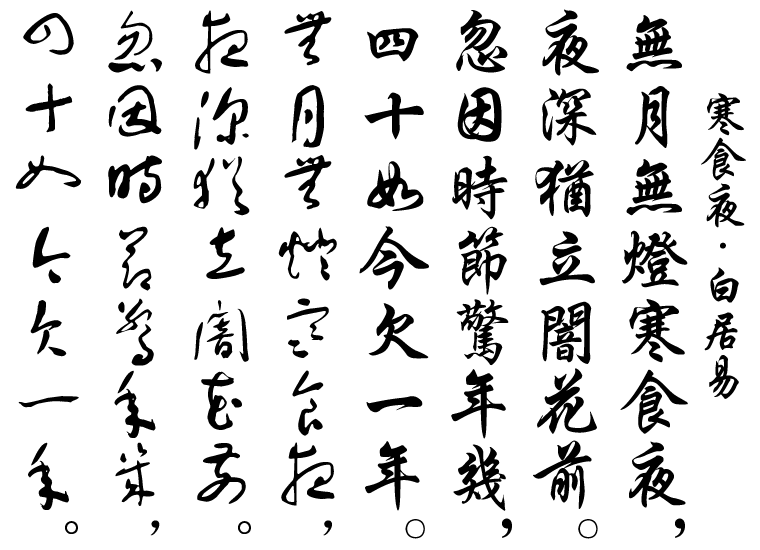 寒食夜·白居易
無月無燈寒食夜，
夜深猶立闇花前。
忽因時節驚年幾，
四十如今欠一年。
無月無燈寒食夜，
夜深猶立闇花前。
忽因時節驚年幾，
四十如今欠一年。